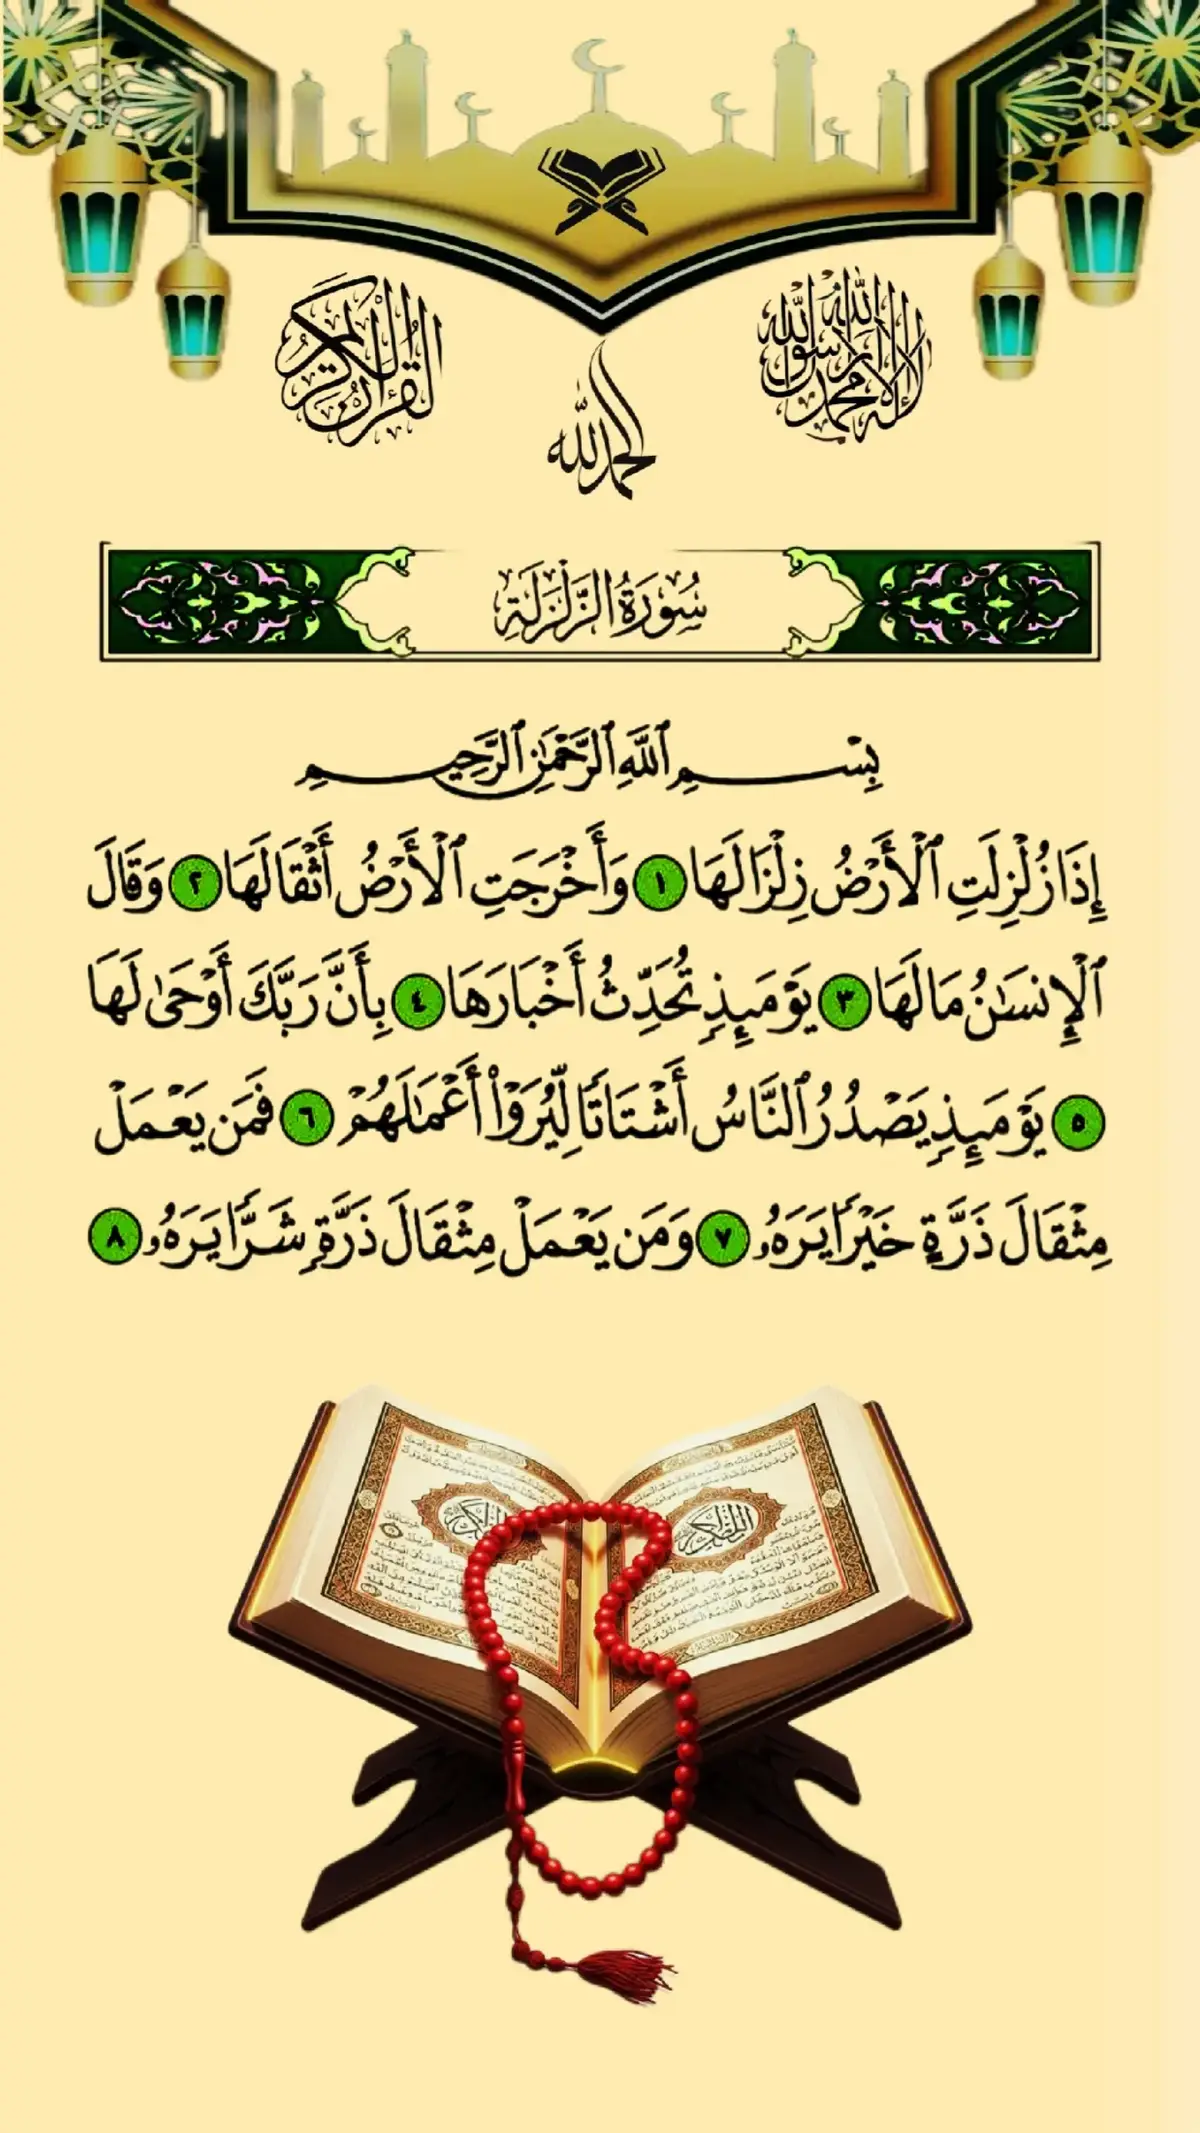 لا إله إلا الله محمد رسول الله
القرآن الكريم
الحمد لله
سُورَةُ الزَّلْزَلَةِ
بِسْمِ ٱللَّهِ ٱلرَّحْمَٰنِ ٱلرَّحِيمِ
إِذَا زُلْزِلَتِ ٱلْأَرْضُ زِلْزَالَهَا ١ وَأَخْرَجَتِ ٱلْأَرْضُ أَثْقَالَهَا ٢ وَقَالَ
ٱلْإِنسَٰنُ مَا لَهَا ٣ يَوْمَئِذٍ تُحَدِّثُ أَخْبَارَهَا ٤ بِأَنَّ رَبَّكَ أَوْحَىٰ لَهَا
٥ يَوْمَئِذٍ يَصْدُرُ ٱلنَّاسُ أَشْتَاتًا لِّيُرَوْا۟ أَعْمَٰلَهُمْ ٦ فَمَن يَعْمَلْ
مِثْقَالَ ذَرَّةٍ خَيْرًا يَرَهُۥ ٧ وَمَن يَعْمَلْ مِثْقَالَ ذَرَّةٍ شَرًّا يَرَهُۥ ٨